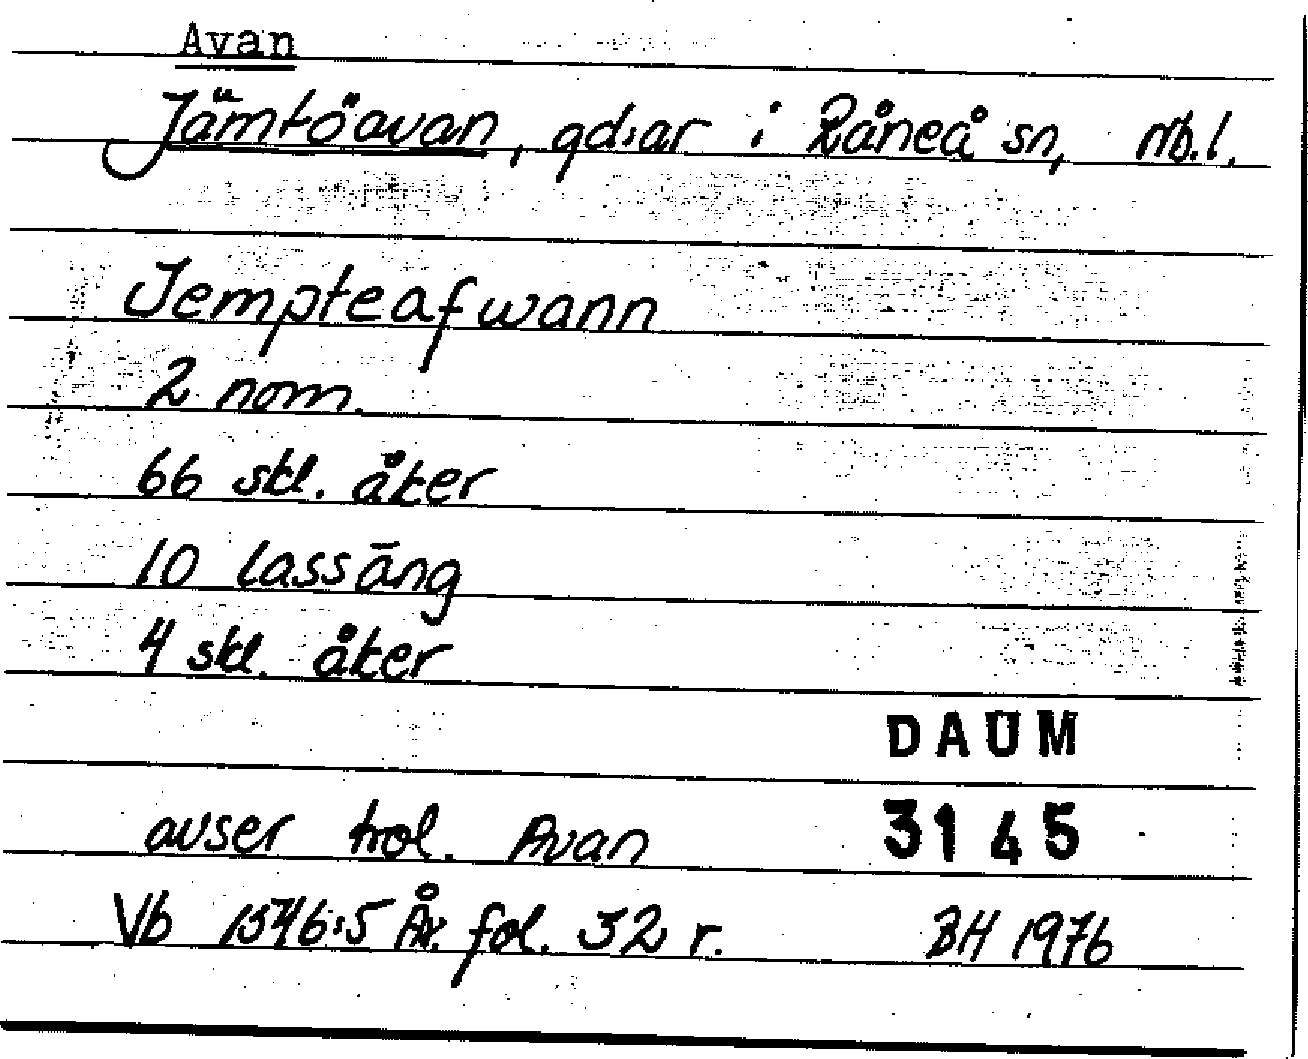 Avan
Jämtöavan, gd:ar i Råneå sn, Nb.l.
Jempteafwann
2 nom.
66 skl. åker
10 lass äng
4 skl. åker
DAUM
avser trol. Avan 3145
Vb 1546:5 År. fol. 32 r. BH 1976